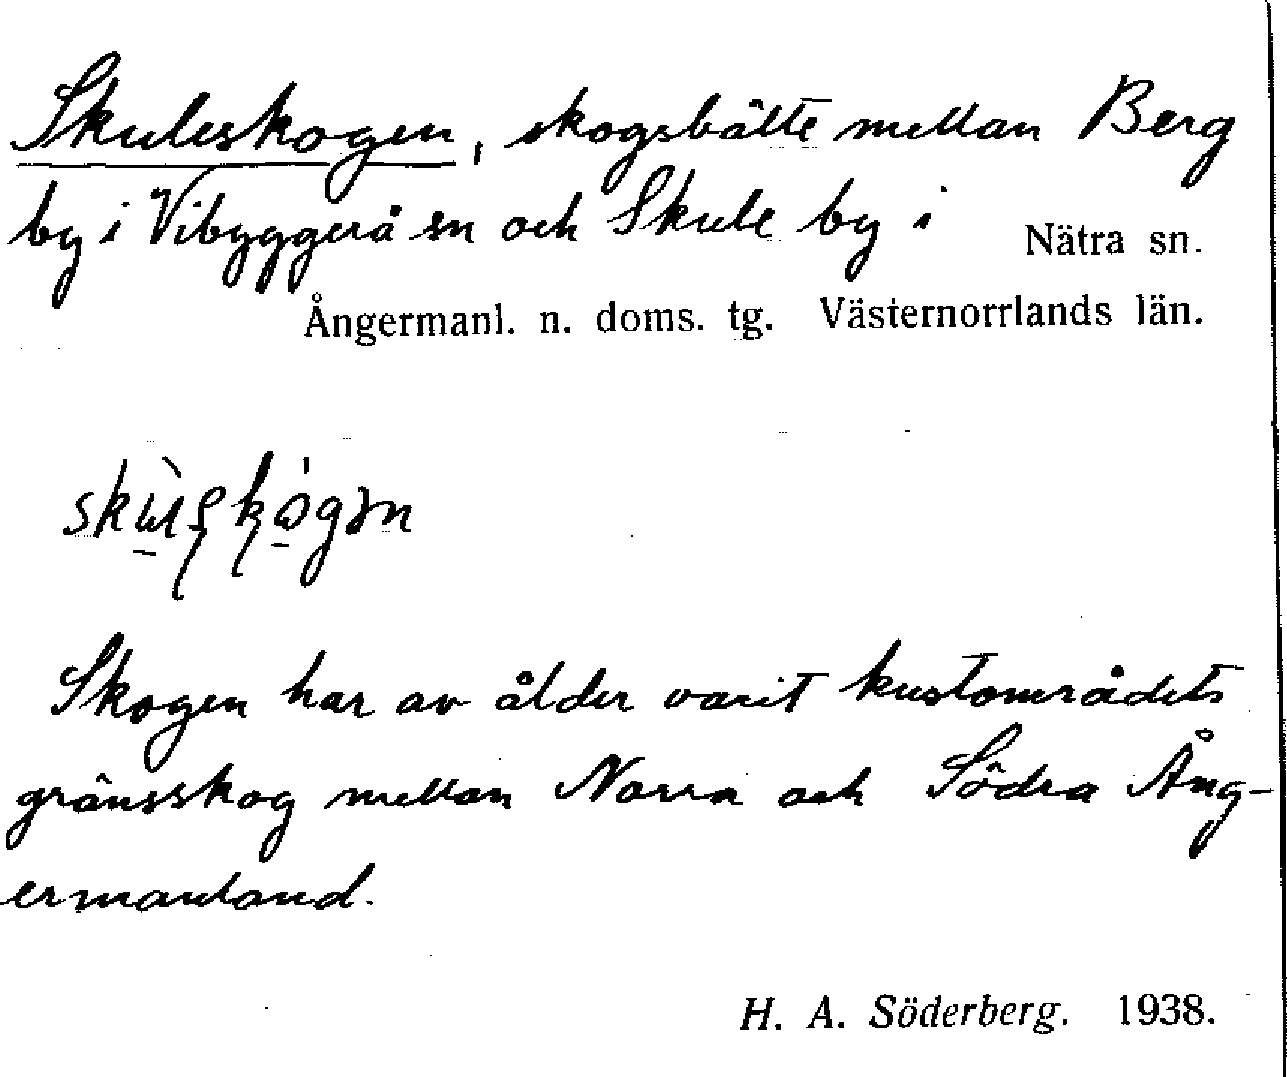 Skuleskogen, skogsbälte mellan Berg
by i Vibyggerå sn och Skule by i Nätra sn.
Ångermanl. n. doms. tg. Västernorrlands län.
Skogen har av ålder varit kustområdets
gränsskog mellan Norra och Södra Ång-
ermanland.
H. A. Söderberg. 1938.